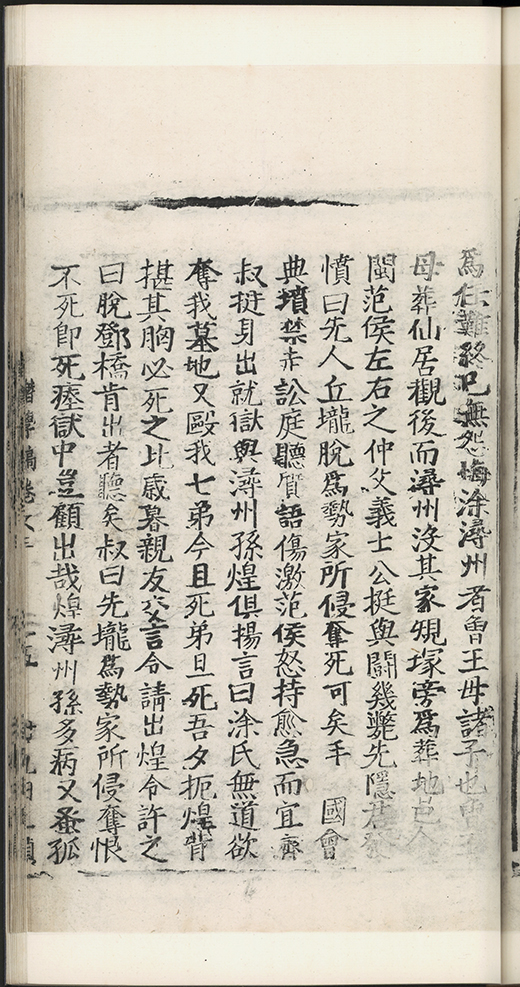 爲仕難終已無怨悔涂潯州者曾王母諸子也曾
母葬仙居觀後而潯州沒其家規塚旁爲葬地邑人
閩范侯左右之仲父義士公挺與鬭幾斃先隱君發
憤曰先人丘壠脫爲勢家所侵奪死可矣手 國會
典墳禁赤訟庭聽質語傷激范侯怒持愈急而宜齊
叔挺身出就獄與潯州孫煌俱揚言曰涂氏無道欲
奪我墓地又毆我七弟今且死弟旦死吾夕扼煌背
揕其胸必死之比歲暮親友交言令請出煌令許之
曰脫鄧橋肯出者聽矣叔曰先壠爲勢家所侵奪恨
不死卽死瘞獄中豈顧出哉煌潯州孫多病又蚤孤